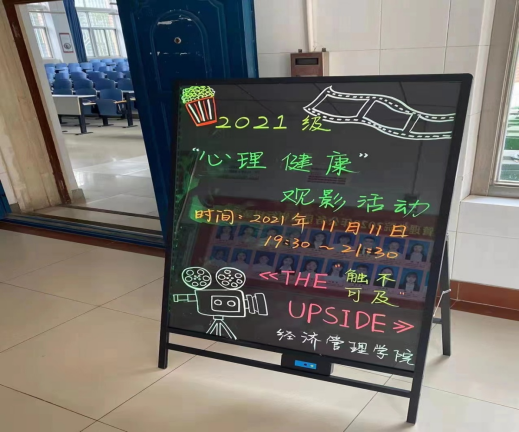 2021级
"心理 健康"
观影活动
时间：2021年11月11日
19:30～21:30
《THE "触不可及"
UPSIDE》
经济管理学院